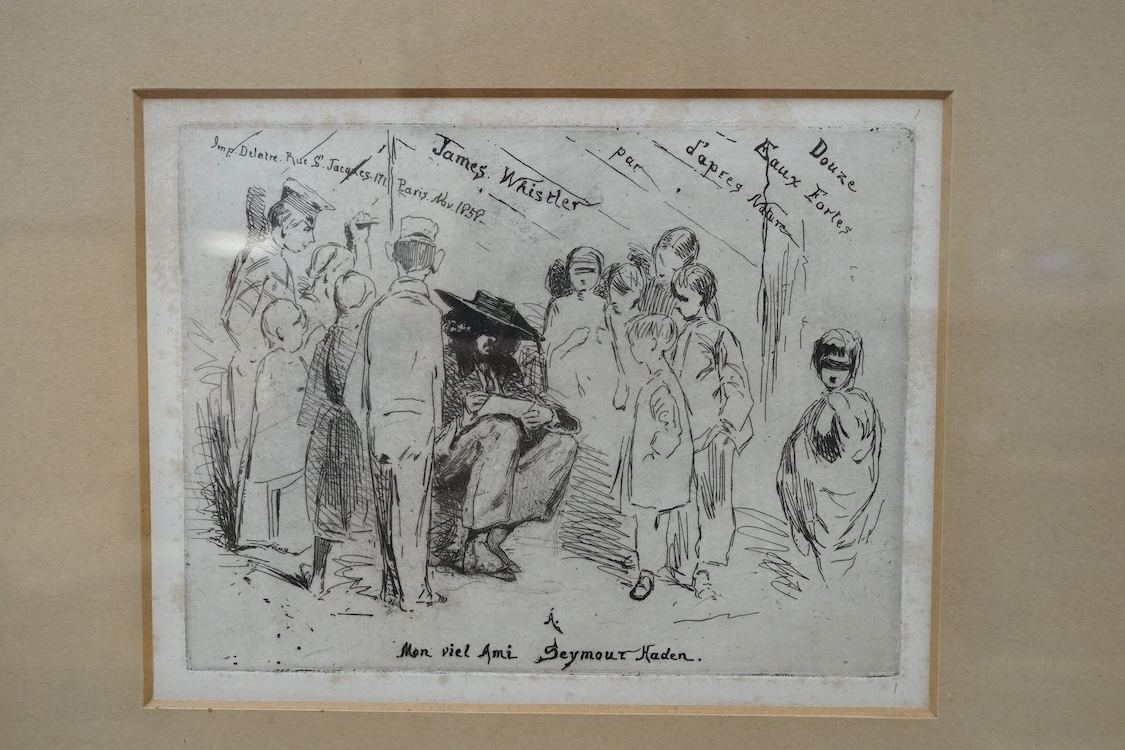 Imp. Delatre. Rue St. Jacques. 171. Paris. Nov. 1858.
Douze
Eaux Fortes
d'apres Nature
par
James Whistler
À.
Mon viel Ami Seymour Haden.